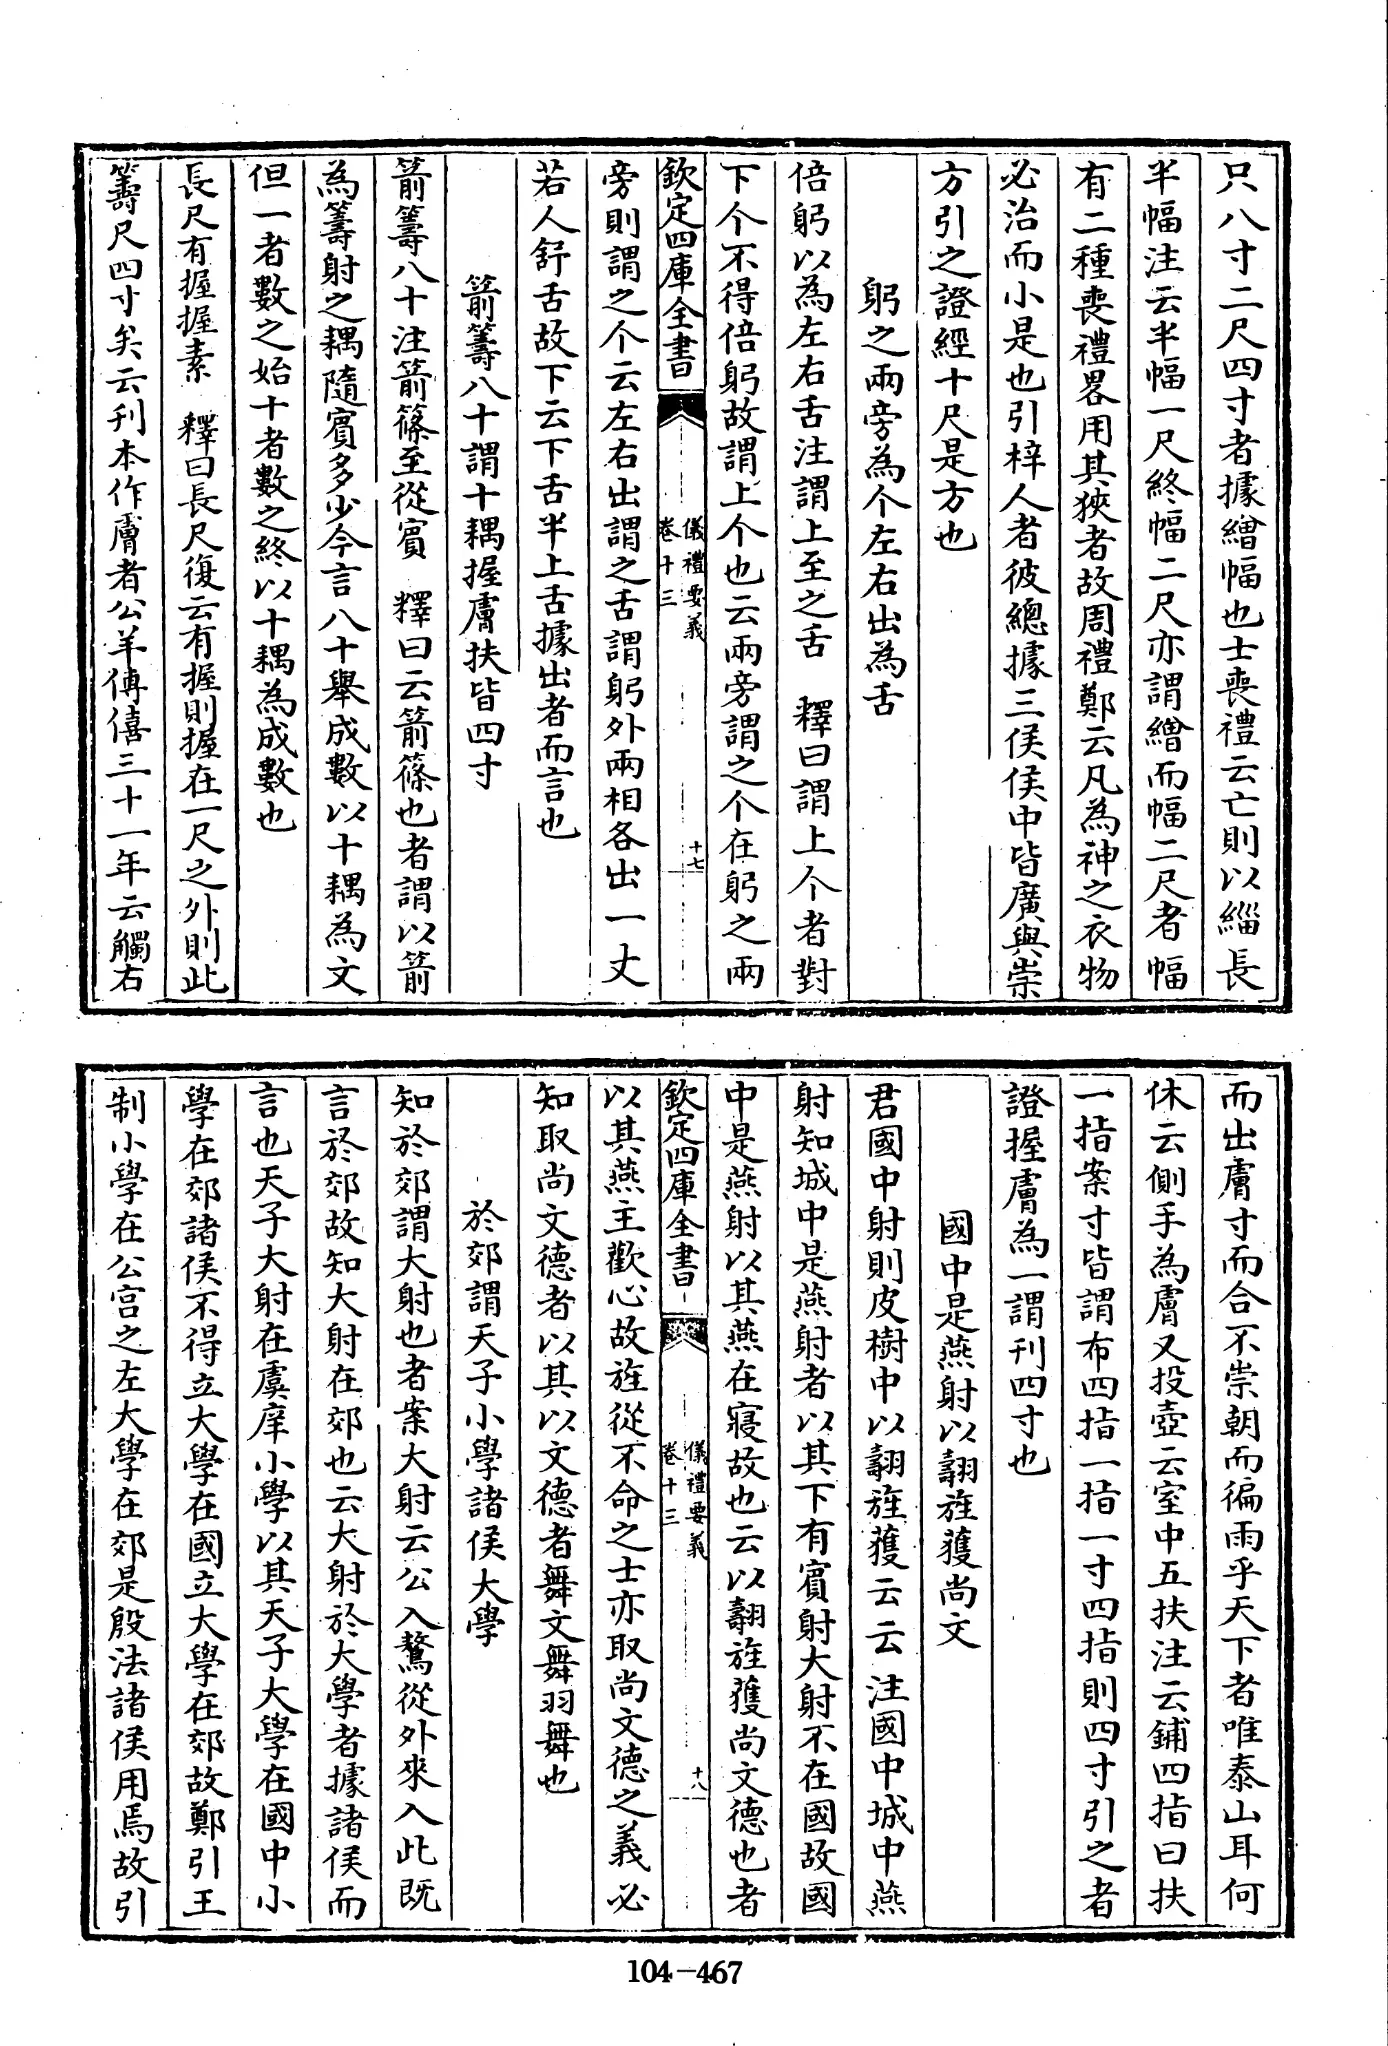 只八寸二尺四寸者據繒幅也士喪禮云亡則以緇長
半幅注云半幅一尺終幅二尺亦謂繒而幅二尺者幅
有二種喪禮畧用其狹者故周禮鄭云凡為神之衣物
必治而小是也引梓人者彼總據三侯侯中皆廣與崇
方引之證經十尺是方也
躬之兩旁為个左右出為舌
倍躬以為左右舌注謂上至之舌 釋曰謂上个者對
下个不得倍躬故謂上个也云兩旁謂之个在躬之兩
欽定四庫全書
儀禮要義
卷十三
十七
旁則謂之个云左右出謂之舌謂躬外兩相各出一丈
若人舒舌故下云下舌半上舌據出者而言也
箭籌八十謂十耦握膚扶皆四寸
箭籌八十注箭篠至從賓 釋曰云箭篠也者謂以箭
為籌射之耦隨賓多少今言八十舉成數以十耦為文
但一者數之始十者數之終以十耦為成數也
長尺有握握素 釋曰長尺復云有握則握在一尺之外則此
籌尺四寸矣云刋本作膚者公羊傳僖三十一年云觸右
而出膚寸而合不崇朝而徧雨乎天下者唯泰山耳何
休云側手為膚又投壺云室中五扶注云鋪四指曰扶
一指案寸皆謂布四指一指一寸四指則四寸引之者
證握膚為一謂刋四寸也
國中是燕射以翿旌獲尚文
君國中射則皮樹中以翿旌獲云云 注國中城中燕
射知城中是燕射者以其下有賓射大射不在國故國
中是燕射以其燕在寢故也云以翿旌獲尚文德也者
欽定四庫全書
儀禮要義
卷十三
十八
以其燕主歡心故旌從不命之士亦取尚文德之義必
知取尚文德者以其以文德者舞文舞羽舞也
於郊謂天子小學諸侯大學
知於郊謂大射也者案大射云公入驁從外來入此既
言於郊故知大射在郊也云大射於大學者據諸侯而
言也天子大射在虞庠小學以其天子大學在國中小
學在郊諸侯不得立大學在國立大學在郊故鄭引王
制小學在公宮之左大學在郊是殷法諸侯用焉故引
104-467